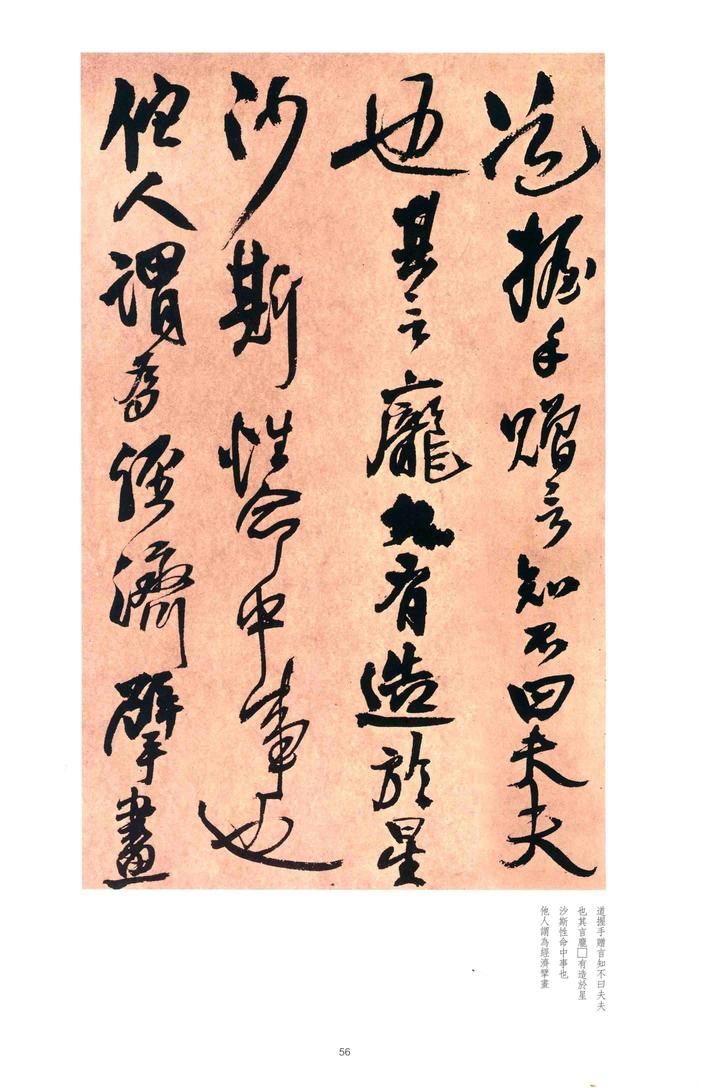 道握手贈言知不曰夫夫
也其言龐有造於星
沙斯性命中事也
他人謂為經濟擘畫
道握手贈言知不曰夫夫
也其言龐□有造於星
沙斯性命中事也
他人謂為經濟擘畫
56